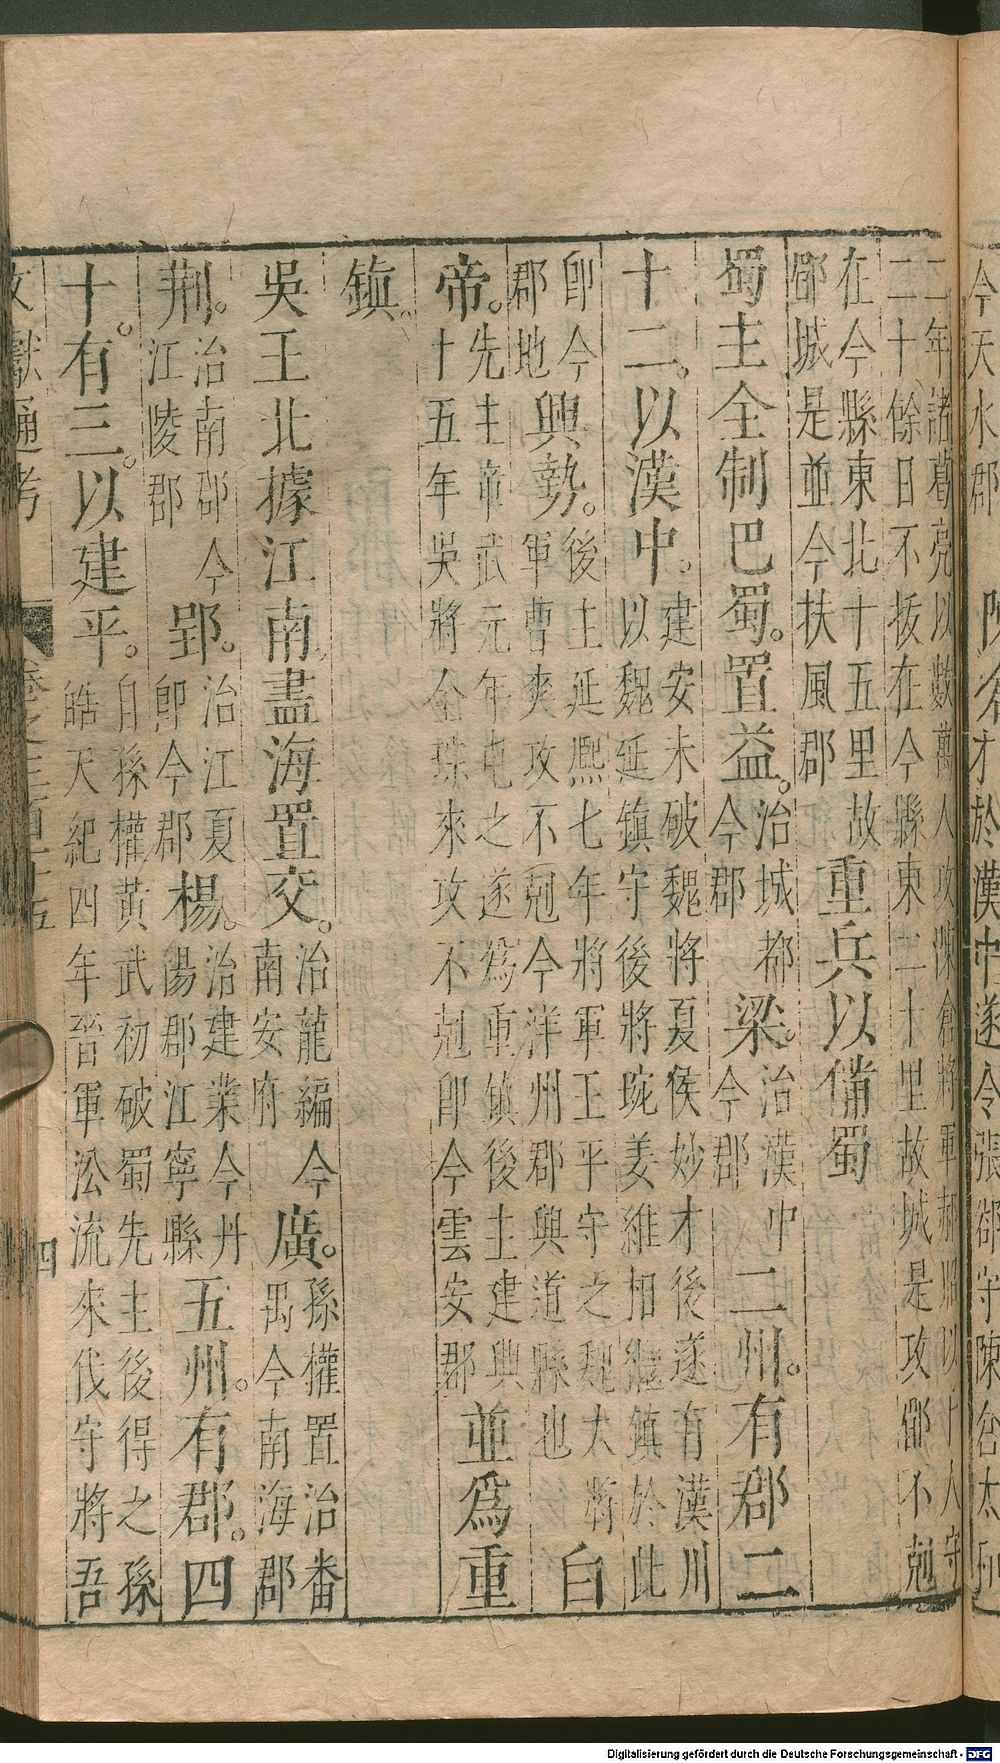 今天水郡 陳倉 才於漢中遂令張郃守陳倉太和
二年諸葛亮以數萬人攻陳倉將軍郝昭以千人守
二十餘日不拔在今縣東二十里故城是攻郿不剋
在今縣東北十五里故
郿城是並今扶風郡 重兵以備蜀
蜀主全制巴蜀。置益。治城都今郡 梁。治漢中今郡 二州。有郡二
十二。以漢中。建安末破魏將夏侯妙才後遂有漢川
以魏延鎮守後將琬姜維相繼鎮於此
即今郡地 興勢。後主延熙七年將軍王平守之魏太將
軍曹爽攻不剋今洋州郡興道縣也 白
帝。先主章武元年屯之遂爲重鎮後主建興
十五年吳將全琮來攻不剋即今雲安郡 並爲重
鎮。
吳王北據江南盡海置交。治龍編今安南府 廣。孫權置治番禺今南海郡
荆。治南郡今江陵郡 郢。治江夏即今郡 楊。治建業今丹陽郡江寧縣 五州。有郡。四
十。有三。以建平。自孫權黃武初破蜀先主後得之孫
皓天紀四年晉軍㳂流來伐守將吾
文獻通考 卷之三百十五 四
Digitalisierung gefördert durch die Deutsche Forschungsgemeinschaft - DFG